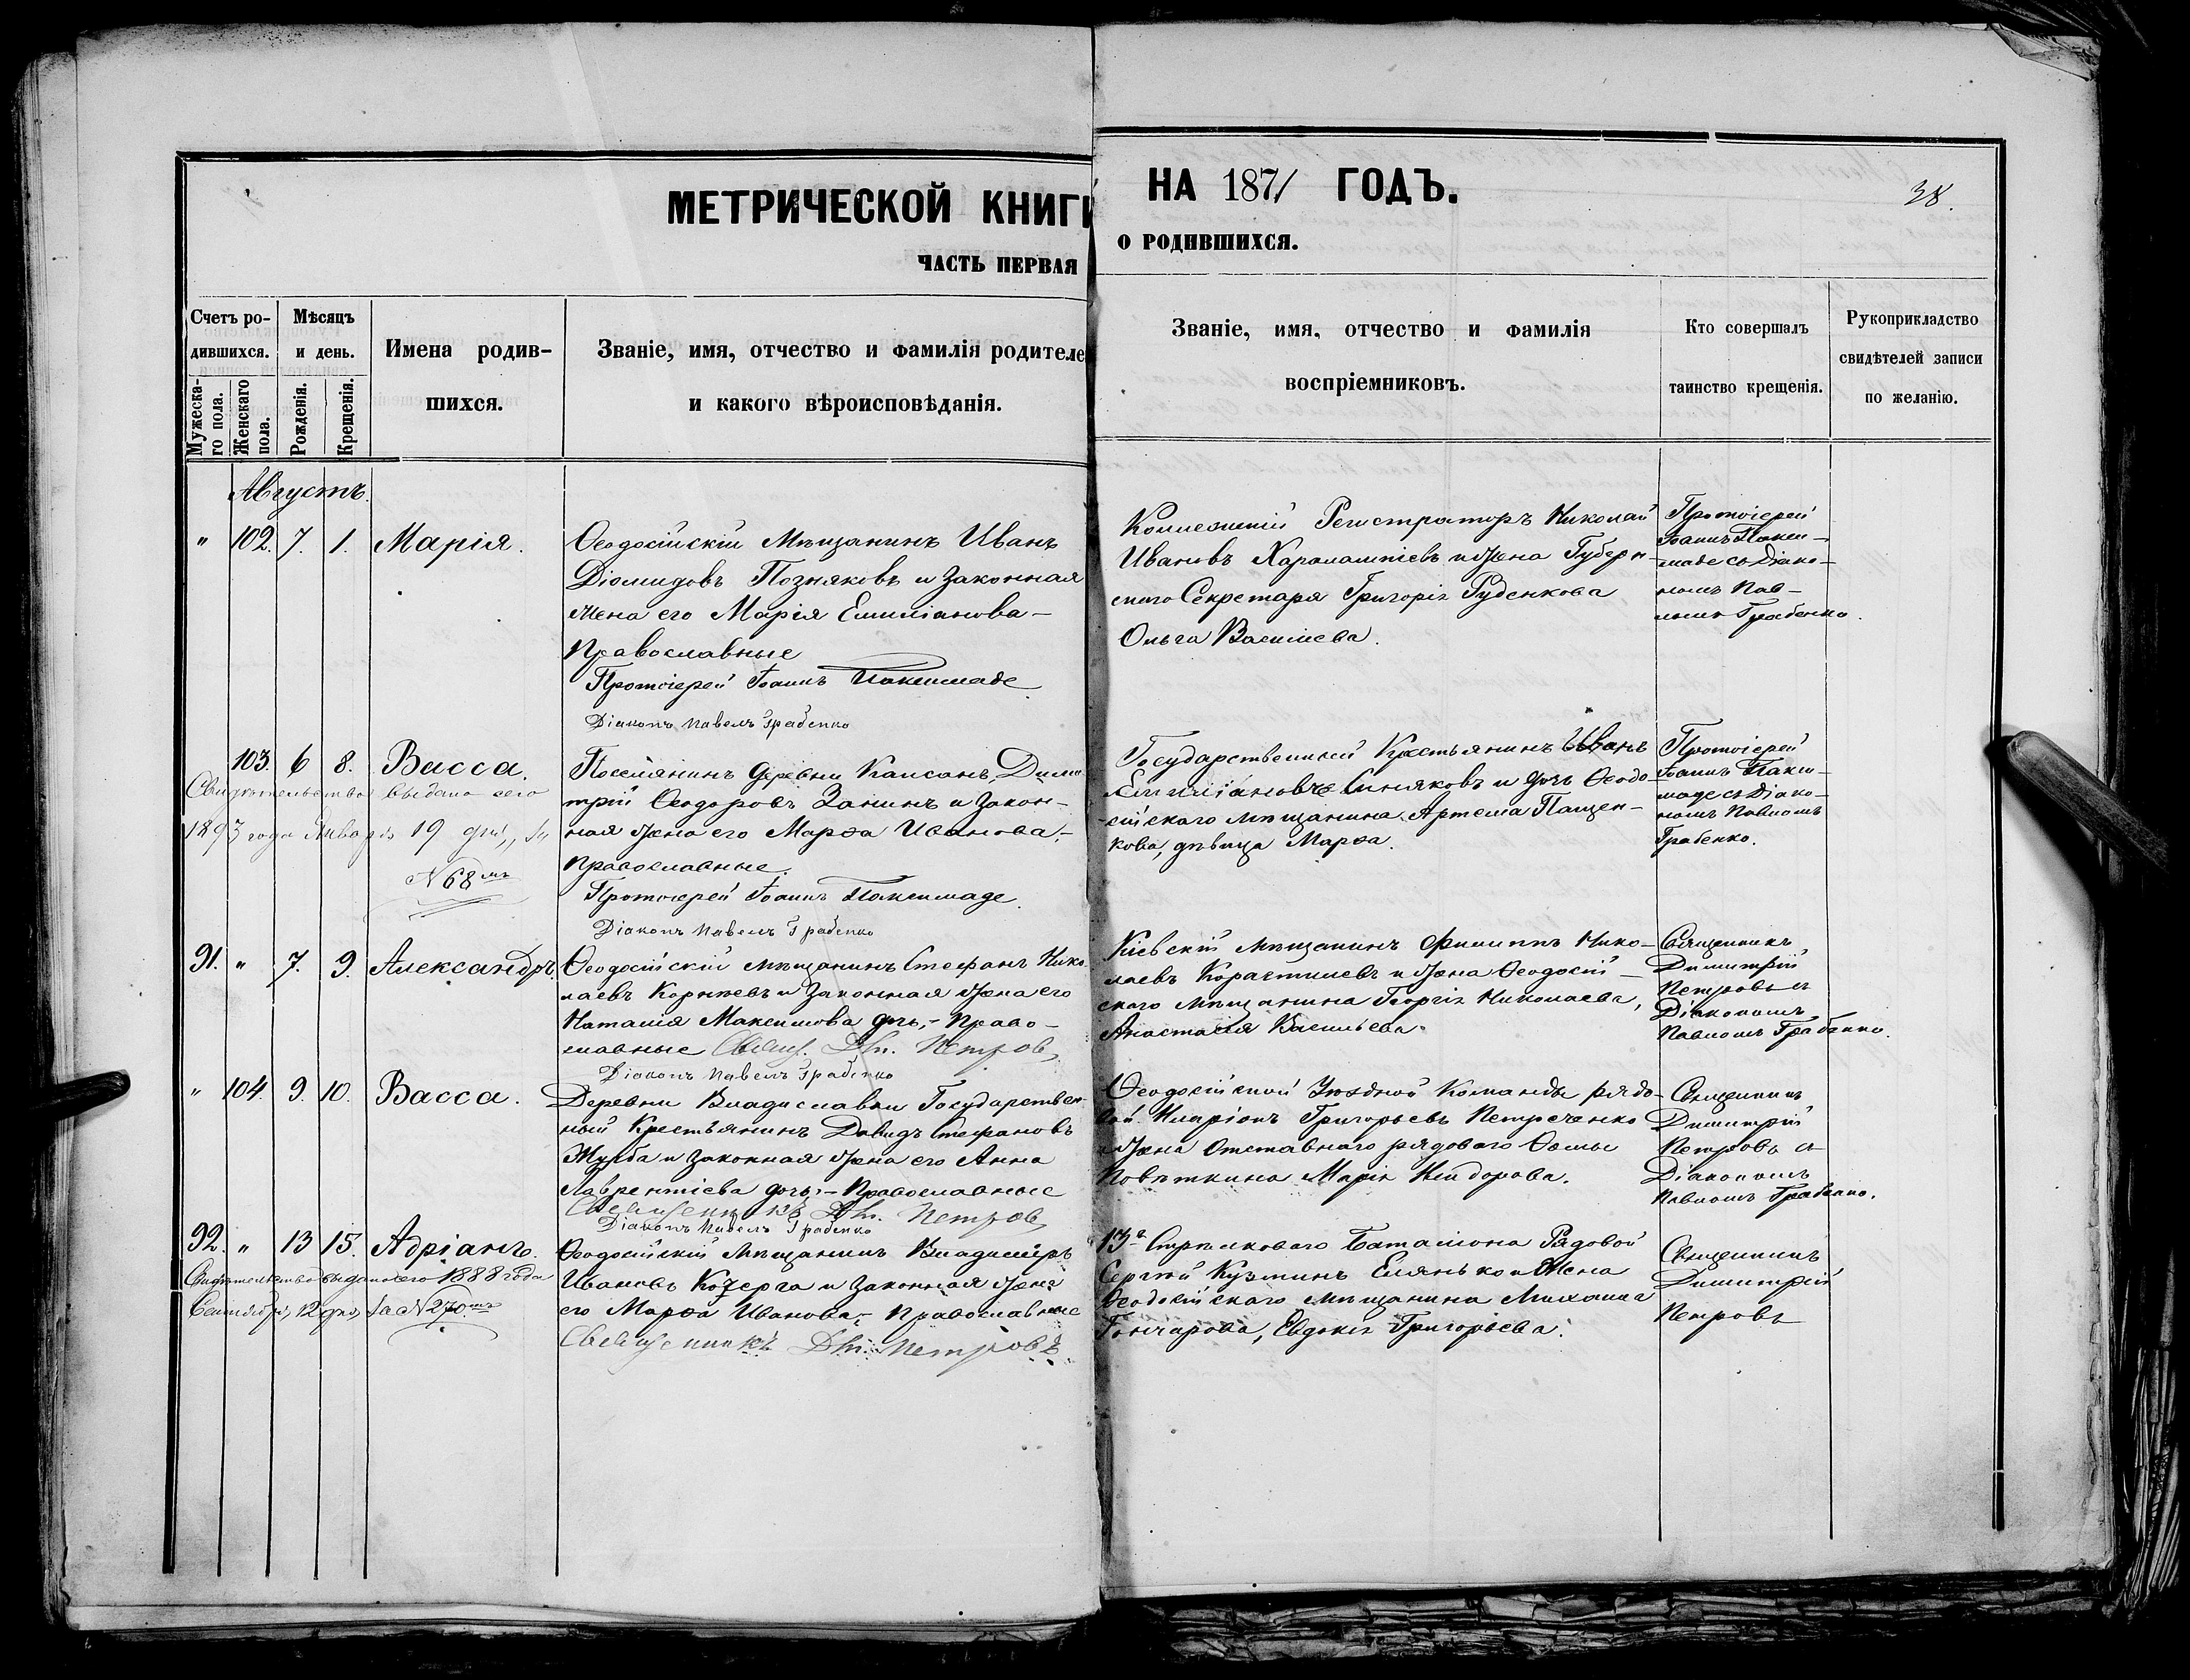 МЕТРИЧЕСКОЙ КНИГИ
ЧАСТЬ ПЕРВАЯ
НА 1871 ГОДЪ.
О РОДИВШИХСЯ.
38.
Счетъ ро-
дившихся.
Мужеска-
го пола.
Женскаго
пола.
Мѣсяцъ
и день.
Рожденія.
Крещенія.
Имена родив-
шихся.
Званіе, имя, отчество и фамилія родителе
и какого вѣроисповѣданія.
Званіе, имя, отчество и фамилія
воспріемниковъ.
Кто совершалъ
таинство крещенія.
Рукоприкладство
свидѣтелей записи
по желанію.
Августъ.
" 102. 7. 1. Марія.
Ѳеодосійскій Мѣщанинъ Иванъ
Діомидовъ Позняковъ и законная
жена его Марія Емиліанова –
Православные
Протоіерей Іоаннъ Паксимаде
Діаконъ Павелъ Грабенко
Коллежскій Регистраторъ Николай
Ивановъ Харалампіевъ и Жена Губерн-
скаго Секретаря Григорія Руденкова
Ольга Васильева.
Протоіерей
Іоаннъ Пакси-
маде съ Діако-
номъ Пав-
ломъ Грабенко.
103. 6 8. Васса.
Свидѣтельство выдано сего
1893 года Января 19 дня, за
№ 68мъ
Поселянинъ деревни Капсанъ, Дими
трій Ѳеодоровъ Занинъ и закон-
ная Жена его Марѳа Иванова. –
Православные.
Протоіерей Іоаннъ Паксимаде.
Діаконъ Павелъ Грабенко
Государственный Крестьянинъ Иванъ
Емиліановъ Синяковъ и дочь Ѳеодо
сійскаго мѣщанина Артема Пащен-
кова, дѣвица Марѳа.
Протоіерей
Іоаннъ Пакси-
маде съ Діако-
номъ Павломъ
Грабенко.
91. " 7. 9. Александръ
Ѳеодосійскій мѣщанинъ Стефанъ Нико
лаевъ Корнѣевъ и Законная Жена его
Наталія Максимова дочь, – Право-
славные Свящ. Дм. Петровъ
Діаконъ Павелъ Грабенко
Кіевскій мѣщанинъ Филиппъ Нико-
лаевъ и Жена Ѳеодосій-
скаго Мѣщанина Георгія Николаева,
Анастасія Васильева.
Священникъ
Димитрій
Петровъ съ
Діакономъ
Павломъ Грабенко.
" 104. 9. 10. Васса.
Деревни Владиславки Государствен
ный Крестьянинъ Давидъ Стефановъ
Журба и законная Жена его Анна
Лаврентіева дочь, – Православные
Священникъ Дм. Петровъ
Діаконъ Павелъ Грабенко
Ѳеодосійской Уѣздной Команды рядо-
вой Иларіонъ Григорьевъ Петреченко
и Жена Отставнаго рядоваго Ѳомы
Повѣткина Марія Исидорова.
Священникъ
Димитрій
Петровъ съ
Діакономъ
Павломъ Грабенко.
92. " 13 15. Адріанъ.
Свидѣтельство выдано сего 1888 года
Сентября, 12 дня, за № 270мъ
Ѳеодосійскій Мѣщанинъ Владиміръ
Ивановъ Кочерга и Законная Жена
его Марѳа Иванова, – Православные
Священникъ Дм. Петровъ
13го Стрѣлковаго Баталіона Рядовой
Сергѣй Кузминъ Елянько и Жена
Ѳеодосійскаго Мѣщанина Михаила
Гончарова, Евдокія Григорьева.
Священникъ
Димитрій
Петровъ